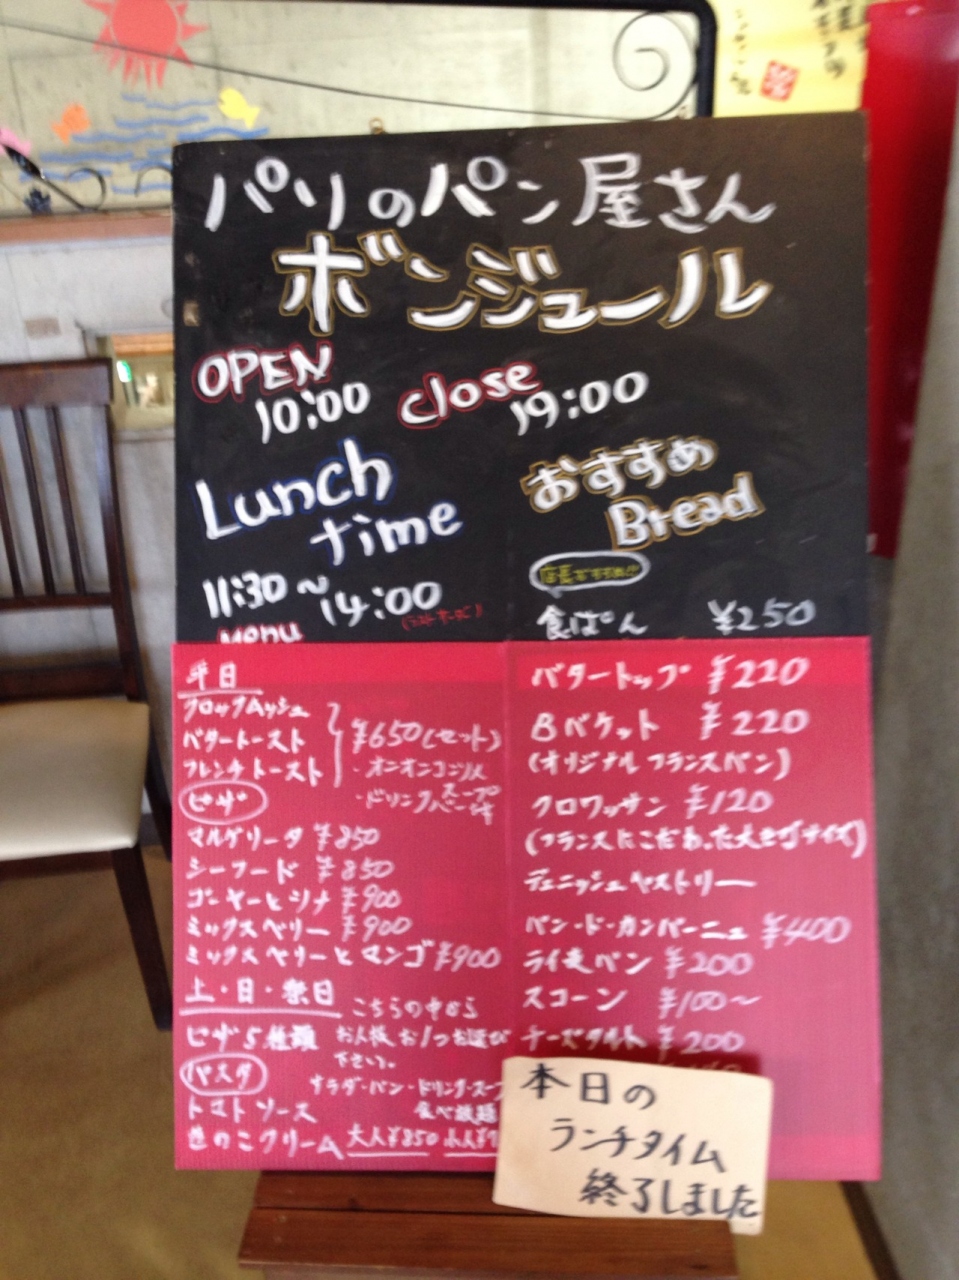 パリのパン屋さん
ボンジュール
OPEN
10:00
close
19:00
Lunch
time
11:30〜
14:00
(ラストオーダー)
Menu
平日
クロックムッシュ
バタートースト
フレンチトースト
¥650(セット)
・オニオンコンソメ
スープ
・ドリンクバー付
ピザ
マルゲリータ ¥850
シーフード ¥850
ゴーヤーとツナ ¥900
ミックスベリー ¥900
ミックスベリーとマンゴ ¥900
土・日・祭日
こちらの中から
ピザ5種類
お人様 お1つお選び
下さい。
パスタ
サラダ・パン・ドリンク・スープ
トマトソース
食べ放題
きのこクリーム
大人¥850
おすすめ
Bread
店長おすすめ!!
食ぱん ¥250
バタートップ ¥220
Bバケット ¥220
(オリジナルフランスパン)
クロワッサン ¥120
(フランスにこだわった大きサイズ)
デニッシュペストリー
パン・ド・カンパーニュ ¥400
ライ麦パン ¥200
スコーン ¥100〜
チーズタルト ¥200
本日の
ランチタイム
終了しました